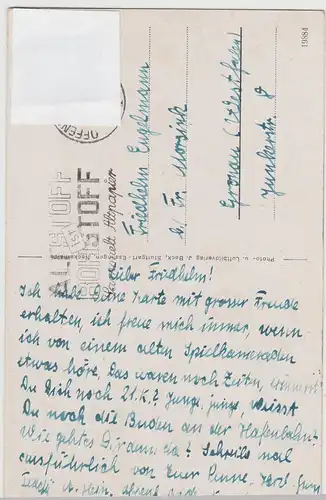 19884
OFFEN
ALTSTOFF
IST
ROHSTOFF
sammelt Altpapier
Friedhelm Engelmann
b/ Fr. Morsink
Gronau (Westfalen)
Junkerstr. 8
Photo- u. Luftbildverlag J. Beck, Stuttgart-Esslingen, Neckarhalde
Lieber Friedhelm!
Ich habe Deine Karte mit grosser Freude
erhalten, ich freue mich immer, wenn
ich von einem alten Spielkameraden
etwas höre, das waren noch Zeiten, erinnerst
Du Dich noch Junge, junge, weisst
Du noch die Buden an der Hafenbahn?
Wie gehts Dir denn da? Schreib mal
ausführlich von Euer